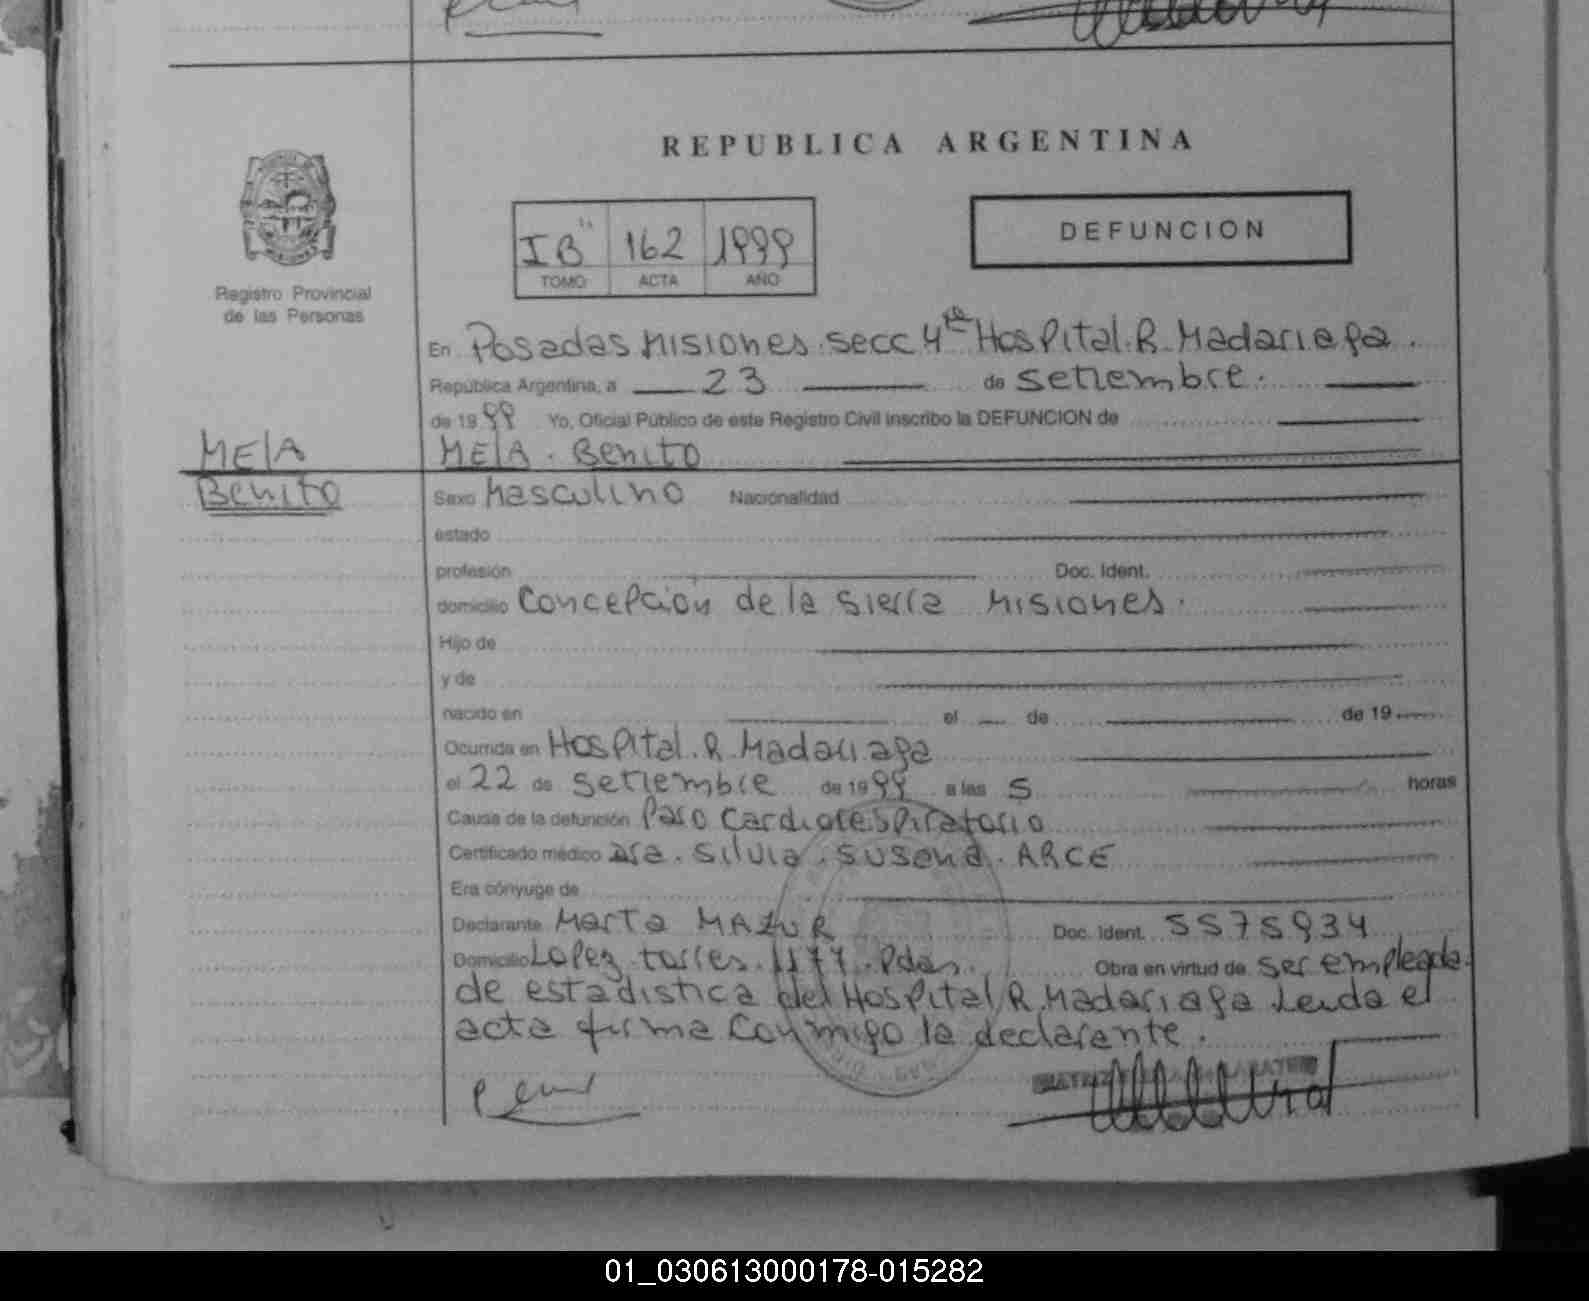 REPUBLICA ARGENTINA
IB" 162 1999
TOMO ACTA AÑO
DEFUNCION
Registro Provincial
de las Personas
En Posadas Misiones. secc 4ta Hospital. R. Madariaga.
República Argentina, a 23 de setiembre.
de 1999 Yo, Oficial Público de este Registro Civil inscribo la DEFUNCION de
MEIA
MEIA. Benito
Benito
Sexo Masculino Nacionalidad
estado
profesión Doc. Ident.
domicilio Concepcion de la sierra Misiones.
Hijo de
y de
nacido en el de de 19
Ocurrida en Hospital. R. Madariaga
el 22 de setiembre de 1999 a las 5 horas
Causa de la defunción Paro Cardiorespiratorio
Certificado médico Dra. Silvia. Susana. ARCE
Era cónyuge de
Declarante Marta MAZUR Doc. Ident. 5575934
Domicilio Lopez torres. 1177. Pdas. Obra en virtud de ser empleada.
de estadistica del Hospital R. Madariaga Leida el
acta firma conmigo la declarante.
01_030613000178-015282